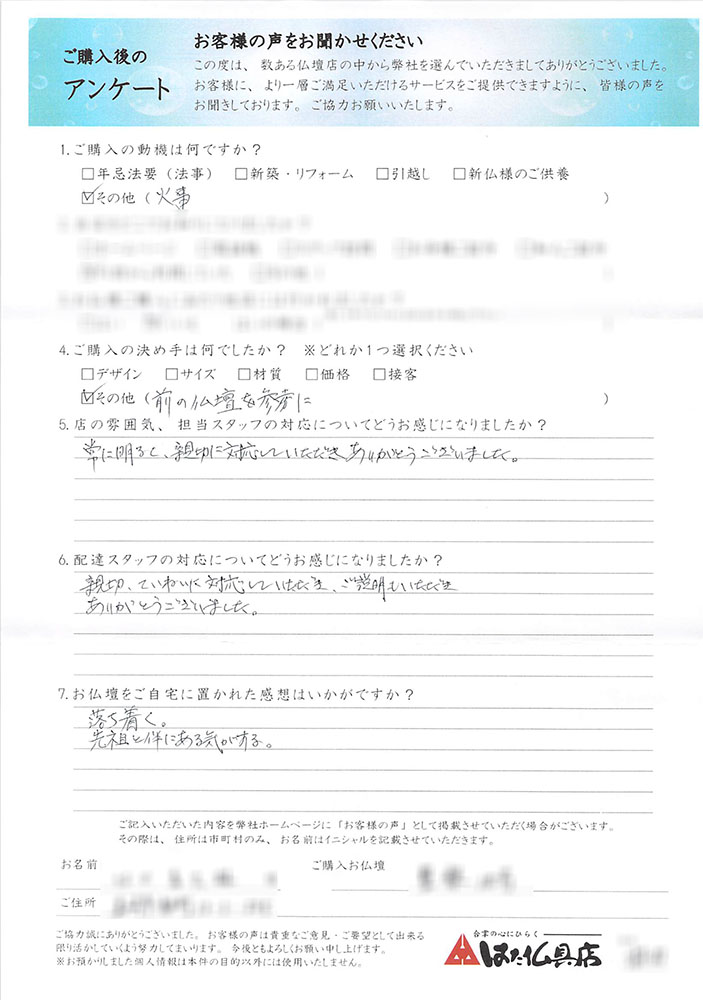 ご購入後の
アンケート
お客様の声をお聞かせください
この度は、数ある仏壇店の中から弊社を選んでいただきましてありがとうございました。
お客様に、より一層ご満足いただけるサービスをご提供できますように、皆様の声を
お聞きしております。ご協力お願いいたします。
1.ご購入の動機は何ですか？
□年忌法要（法事） □新築・リフォーム □引越し □新仏様のご供養
☑その他（火事）
4.ご購入の決め手は何でしたか？ ※どれか1つ選択ください
□デザイン □サイズ □材質 □価格 □接客
☑その他（前の仏壇を参考に）
5.店の雰囲気、担当スタッフの対応についてどうお感じになりましたか？
常に明るく、親切に対応していただきありがとうございました。
6.配達スタッフの対応についてどうお感じになりましたか？
親切、ていねいに対応していただき、ご説明もいただき
ありがとうございました。
7.お仏壇をご自宅に置かれた感想はいかがですか？
落ち着く。
先祖と伴にある気がする。
ご記入いただいた内容を弊社ホームページに「お客様の声」として掲載させていただく場合がございます。
その際は、住所は市町村のみ、お名前はイニシャルを記載させていただきます。
お名前 ご購入お仏壇
ご住所
ご協力誠にありがとうございました。お客様の声は貴重なご意見・ご要望として出来る
限り活かしていくよう努力してまいります。今後ともよろしくお願い申し上げます。
※お預かりしました個人情報は本件の目的以外には使用いたしません。
合掌の心にひらく
はた仏具店